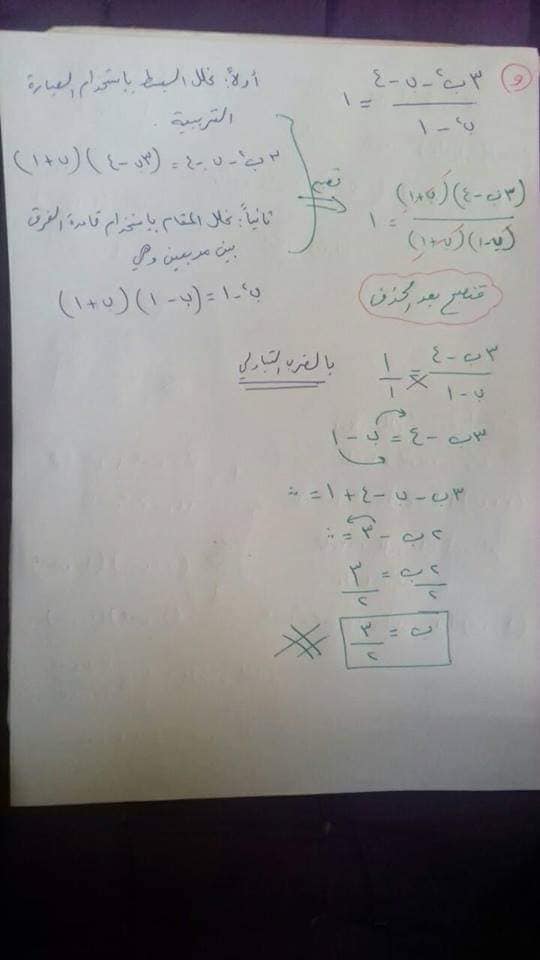 و) (٣ب² - ب - ٤) / (ب² - ١) = ١
أولاً: نحلل البسط باستخدام العبارة
التربيعية.
٣ب² - ب - ٤ = (٣ب - ٤)(ب + ١)
ثانياً: نحلل المقام باستخدام قاعدة الفرق
بين مربعين وهي
ب² - ١ = (ب - ١)(ب + ١)
تصبح
(٣ب - ٤)(ب + ١) / (ب - ١)(ب + ١) = ١
فتصبح بعد الحذف
(٣ب - ٤) / (ب - ١) = ١/١ بالضرب التبادلي
٣ب - ٤ = ب - ١
٣ب - ب - ٤ + ١ = ٠
٢ب - ٣ = ٠
٢ب/٢ = ٣/٢
ب = ٣/٢